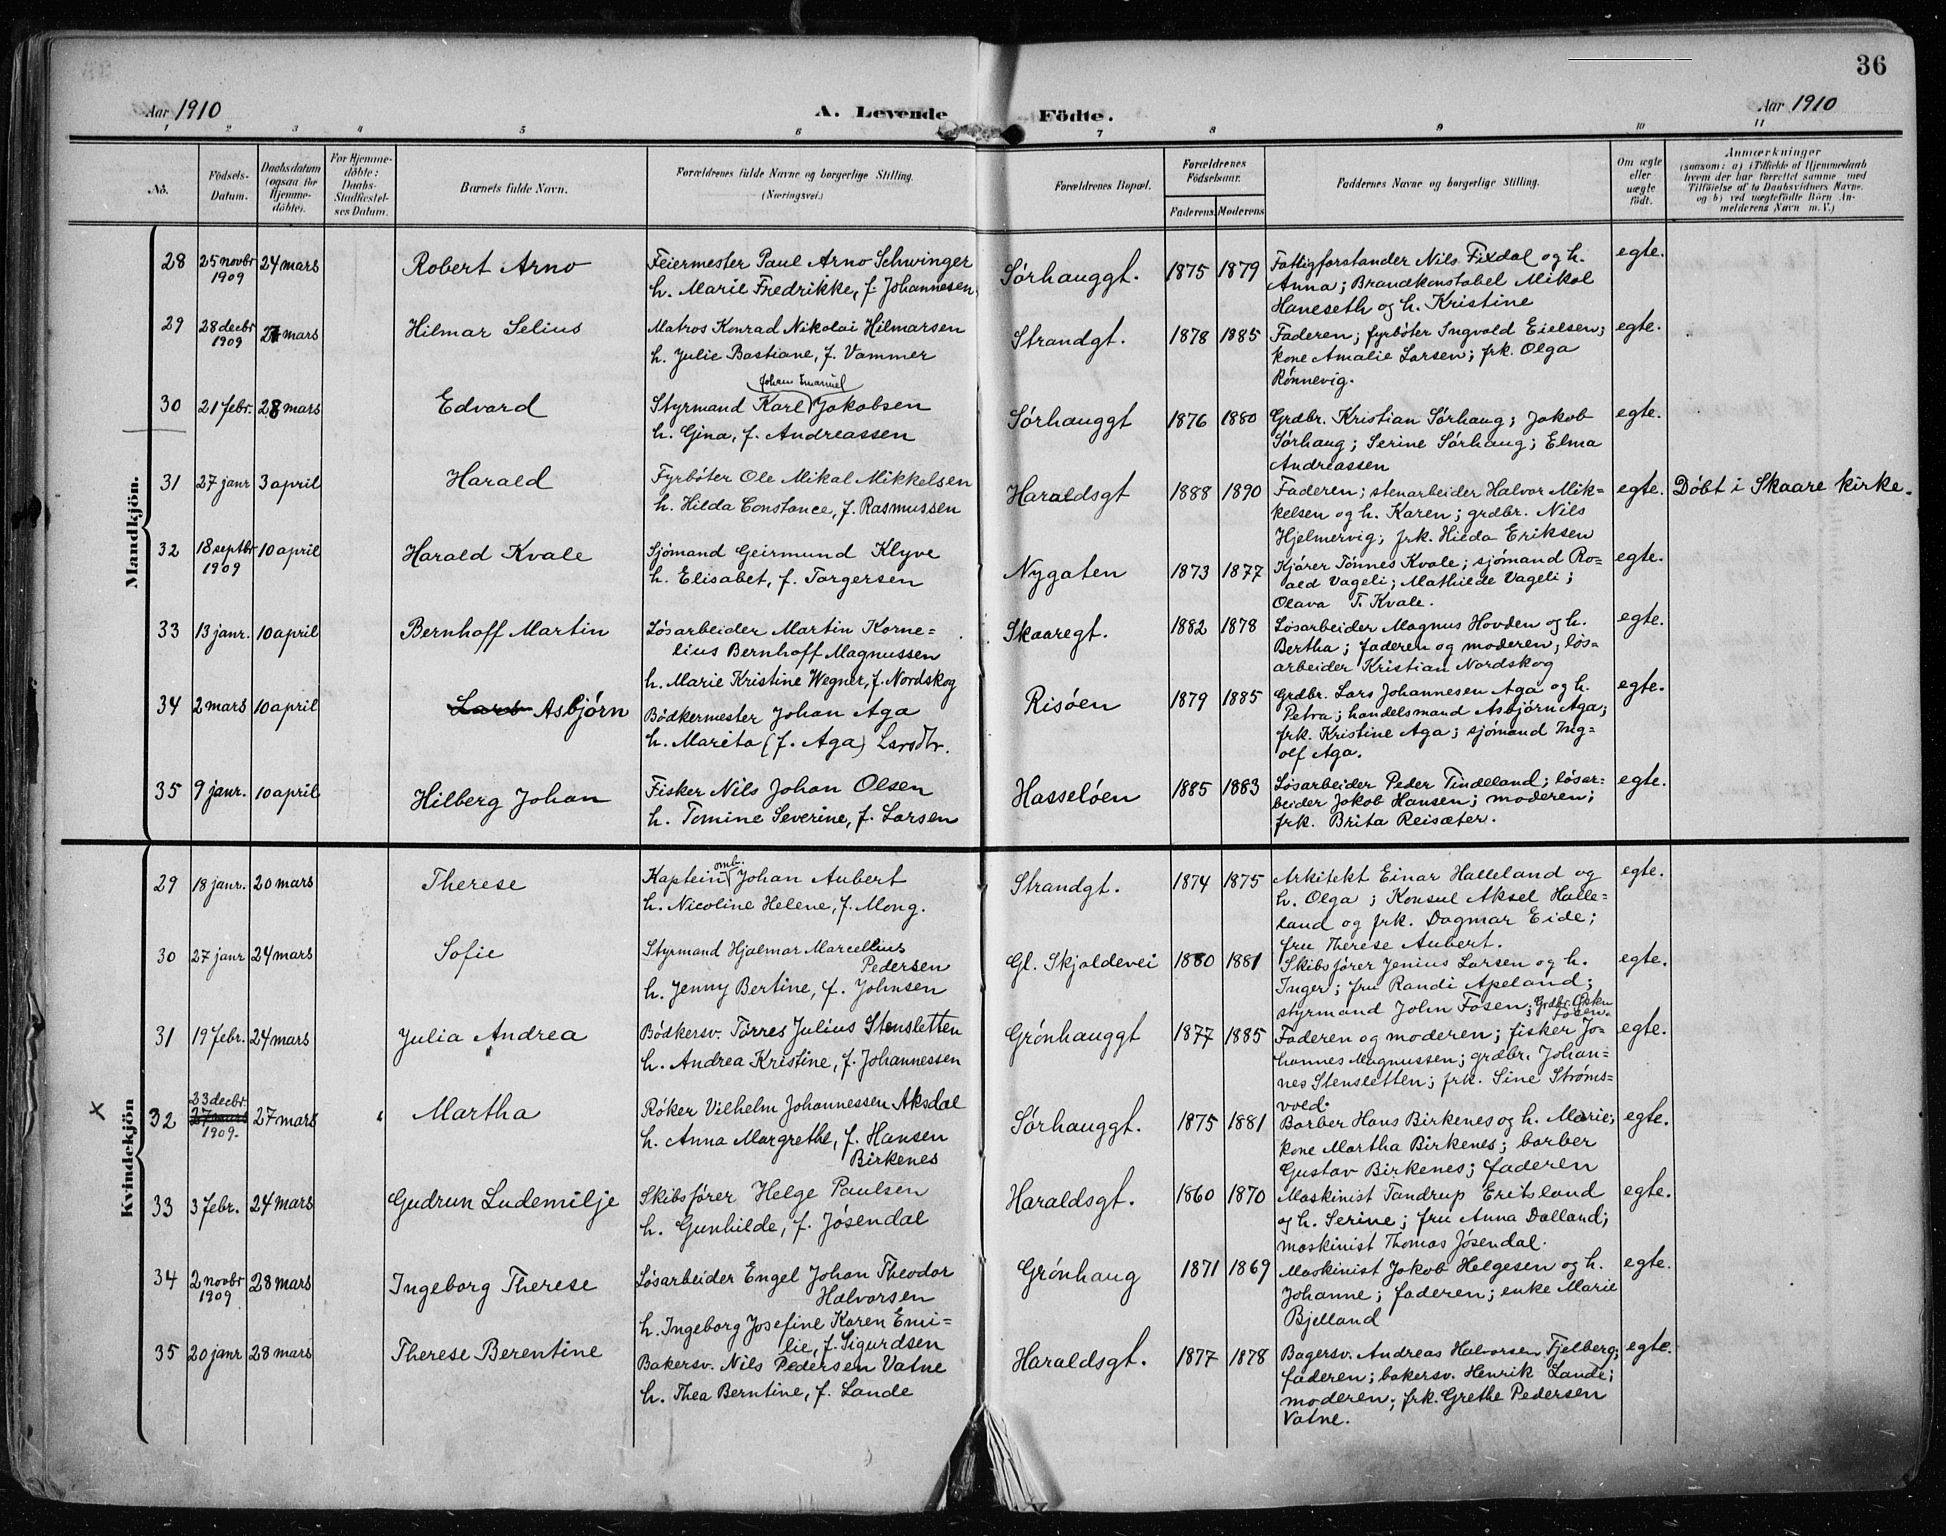 36
Aar 1910
A. Levende Födte.
Aar 1910
1 2 3 4 5 6 7 8 9 10 11
No.
Födsels-Datum.
Daabsdatum (ogsaa for Hjemme-döbte).
For Hjemme-döbte: Daabs-Stadfæstel-ses Datum.
Barnets fulde Navn.
Forældrenes fulde Navne og borgerlige Stilling. (Næringsvei.)
Forældrenes Bopæl.
Forældrenes Födselsaar.
Faderens. Moderens.
Faddernes Navne og borgerlige Stilling.
Om ægte eller uægte födt.
Anmærkninger
(saasom: a) i Tilfælde af Hjemmedaab
hvem der har forrettet samme med
Tilföielse af to Daabsvidners Navne.
og b) ved uægtefödte Börn An-
melderens Navn m. V.)
Mandkjön.
28 25 novbr 1909 24 mars Robert Arno
Feiermester Paul Arno Schwinger
h. Marie Fredrikke, f. Johannesen.
Sørhauggt. 1875 1879
Fatligforstander Nils Fixdal og h.
Anna; Brandkonstabel Mikal
Haneseth og h. Kristine
egte.
29 28 decbr 1909 27 mars Hilmar Selius
Matros Konrad Nikolai Hilmarsen
h. Julie Bastiane, f. Vammer
Strandgt. 1878 1885
Faderen; fyrbøter Ingvald Eielsen;
kone Amalie Larsen; frk. Olga
Rønnevig.
egte.
30 21 febr. 28 mars Edvard
Johan Emanuel
Styrmand Karl Jakobsen
h. Gina, f. Andreassen
Sørhauggt 1876 1880
Grdbr. Kristian Sørhaug; Jakob
Sørhaug; Serine Sørhaug; Elma
Andreassen
egte.
31 27 janr 3 april Harald
Fyrbøter Ole Mikal Mikkelsen
h. Hilda Constance, f. Rasmussen
Haraldsgt 1888 1890
Faderen; stenarbeider Halvor Mik=
kelsen og h. Karen; grdbr. Nils
Hjelmervig; frk. Hilda Eriksen
egte. Døbt i Skaare kirke.
32 18 septbr 1909 10 april Harald Kvale
Sjømand Geirmund Klyve
h. Elisabet, f. Torgersen
Nygaten 1873 1877
Kjører Tønnes Kvale; sjømand Ro=
ald Vageli; Mathilde Vageli;
Olava T. Kvale.
egte.
33 13 janr. 10 april Bernhoff Martin
Løsarbeider Martin Korne=
lius Bernhoff Magnussen
h. Marie Kristine Wegner, f. Nordskog
Skaaregt. 1882 1878
Løsarbeider Magnus Hovden og h.
Bertha; faderen og moderen; løs=
arbeider Kristian Nordskog
egte.
34 2 mars 10 april Lars Asbjørn
Bødkermester Johan Aga
h. Marita (f. Aga) Larsdtr.
Risøen 1879 1885
Grdbr. Lars Johannesen Aga og h.
Petra; handelsmand Asbjørn Aga;
frk. Kristine Aga; sjømand Ing=
olf Aga.
egte.
35 9 janr. 10 april Hilberg Johan
Fisker Nils Johan Olsen
h. Tomine Severine, f. Larsen
Hasseløen 1885 1883
Løsarbeider Peder Tindeland; løsar=
beider Jakob Hansen; moderen;
frk. Brita Reisæter.
egte.
Kvindekjön
29 18 janr. 20 mars Therese
omb.
Kaptein Johan Aubert
h. Nicoline Helene, f. Mong.
Strandgt. 1874 1875
Arkitekt Einar Halleland og
h. Olga; Konsul Aksel Halle=
land og frk. Dagmar Eide;
fru Therese Aubert.
egte.
30 27 janr 24 mars Sofie
Styrmand Hjalmar Marcellius
Pedersen
h. Jenny Bertine, f. Johnsen
Gl. Skjoldevei 1880 1881
Skibsfører Jenius Larsen og h.
Inger; fru Randi Apeland;
styrmand John Fosen; Grdbr.
Fosen.
egte.
31 19 febr. 24 mars Julia Andrea
Bødkersv. Tørres Julius Stensletten
h. Andrea Kristine, f. Johannessen
Grønhauggt 1877 1885
Faderen og moderen; fisker Jo=
hannes Magnussen; grdbr. Johan=
nes Stensletten; frk. Sine Strøms=
vold.
egte.
x 32 23 decbr 27 mars 1909. 27 mars Martha
Røker Vilhelm Johannessen Aksdal
h. Anna Margrethe, f. Hansen
Birkenes
Sørhauggt. 1875 1881
Barber Hans Birkenes og h. Marie;
kone Martha Birkenes; barber
Gustav Birkenes; faderen
egte.
33 3 febr. 24 mars Gudrun Ludemilje
Skibsfører Helge Paulsen
h. Gunhilde, f. Jøsendal
Haraldsgt. 1860 1870
Maskinist Tandrup Eritsland
og h. Serine; fru Anna Dalland;
maskinist Thomas Jøsendal.
egte.
34 2 novbr 1909 28 mars Ingeborg Therese
Løsarbeider Engel Johan Theodor
Halvorsen
h. Ingeborg Josefine Karen Emi=
lie, f. Sigurdsen
Grønhaug 1871 1869
Maskinist Jakob Helgesen og h.
Johanne; faderen; enke Marie
Bjelland
egte.
35 20 janr 28 mars Therese Berentine
Bakersv. Nils Pedersen Vatne
h. Thea Berntine, f. Lande
Haraldsgt. 1877 1878
Bagersv. Andreas Halvorsen Fjelberg;
faderen; bakersv. Henrik Lande;
moderen; frk. Grethe Pedersen
Vatne.
egte.